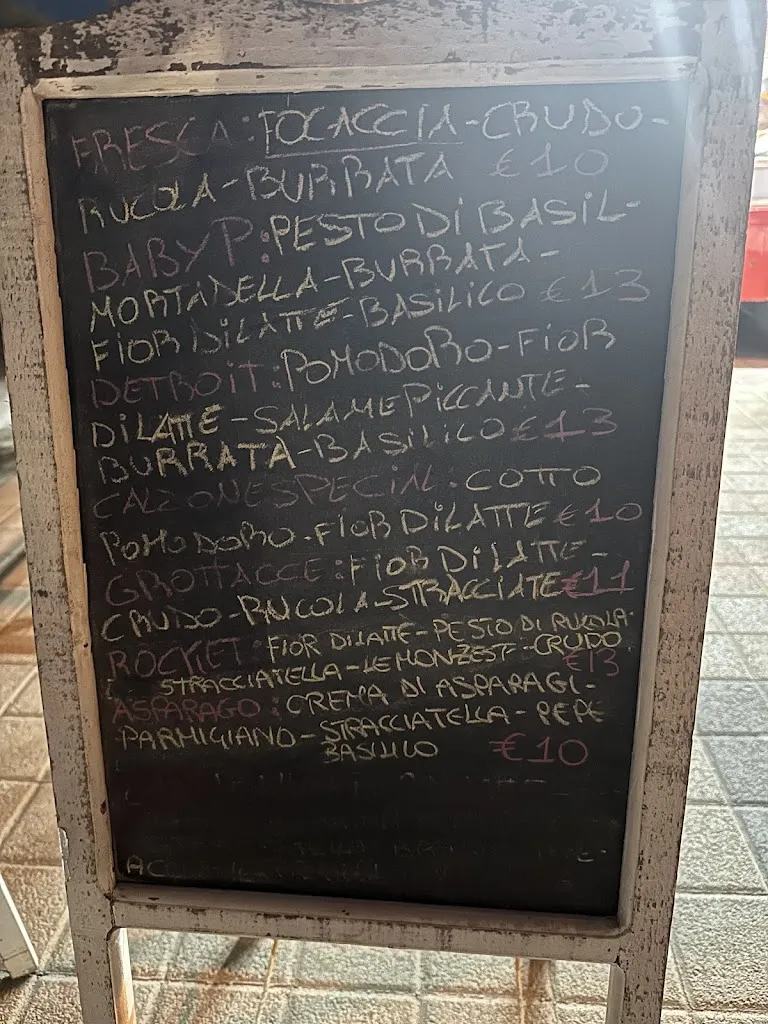 FRESCA: FOCACCIA-CRUDO-
RUCOLA-BURRATA €10
BABY P: PESTO DI BASIL-
MORTADELLA-BURRATA-
FIOR DI LATTE-BASILICO €13
DETROIT: POMODORO-FIOR
DI LATTE-SALAME PICCANTE-
BURRATA-BASILICO €13
CALZONE SPECIAL: COTTO
POMODORO-FIOR DI LATTE €10
GROTTACCE: FIOR DI LATTE-
CRUDO-RUCOLA-STRACCIATE €11
ROCKET: FIOR DI LATTE-PESTO DI RUCOLA-
STRACCIATELLA-LEMONZEST-CRUDO €13
ASPARAGO: CREMA DI ASPARAGI-
PARMIGIANO-STRACCIATELLA-PEPE
BASILICO €10